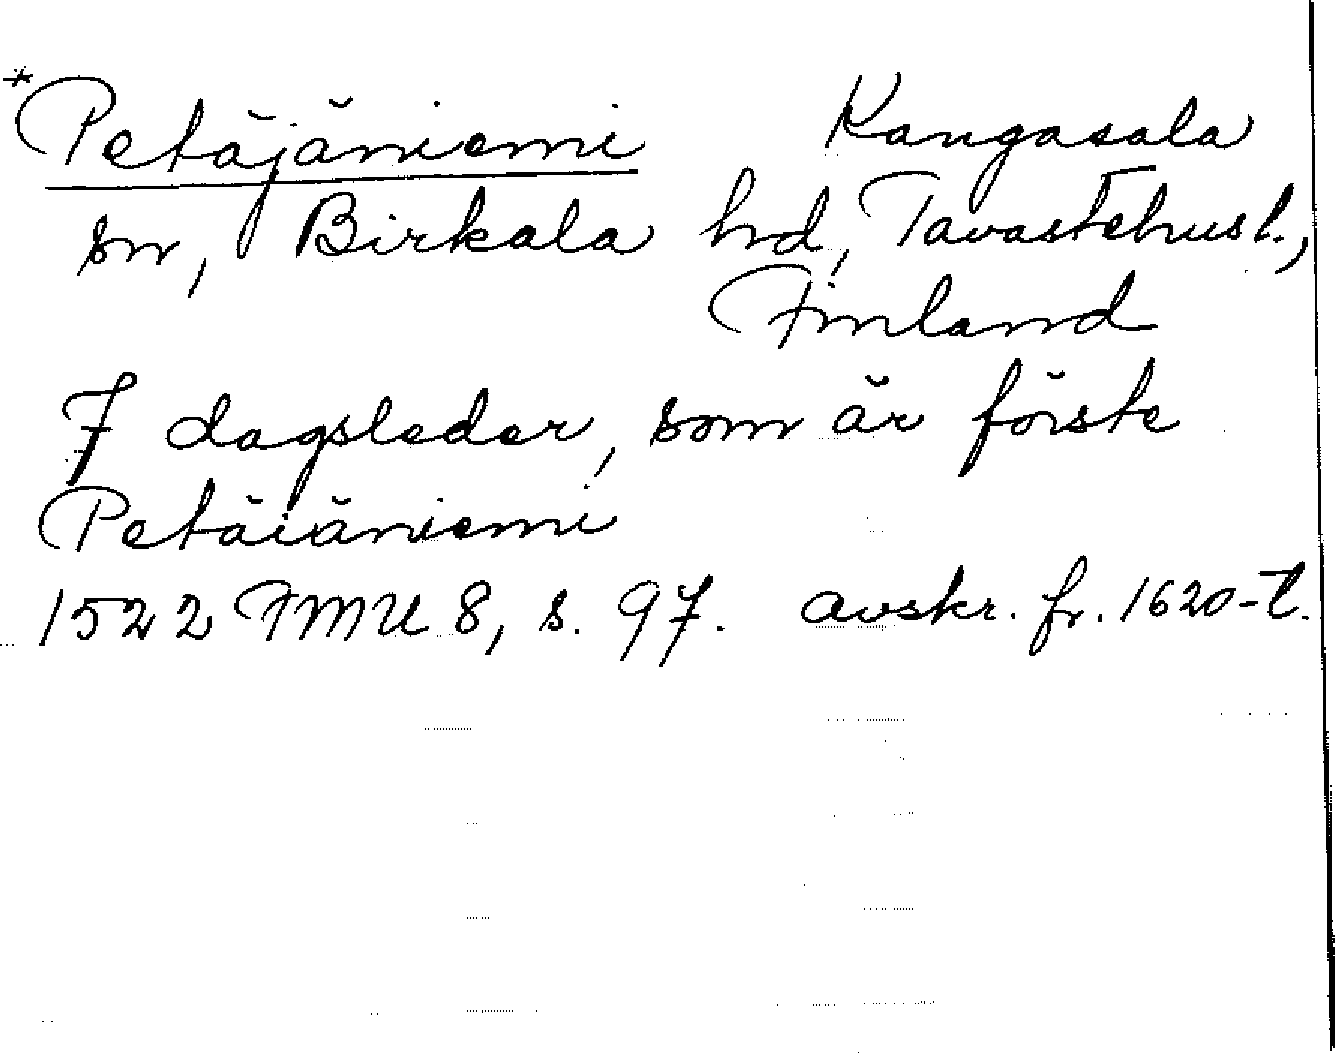 *Petäjäniemi Kangasala
sn, Birkala hd, Tavastehus l.,
Finland
7 dagsleder, som är förste
Petäiäniemi
1522 FMU 8, s. 97. avskr. fr. 1620-t.